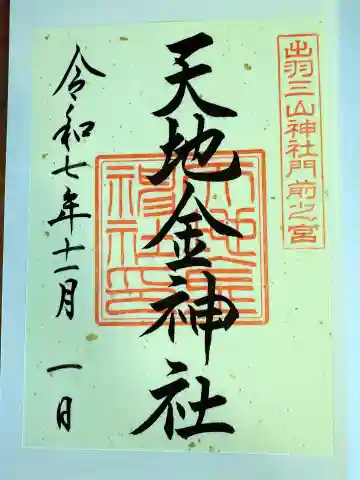 出羽三山神社門前之宮
天地金神社
令和七年十一月 一日